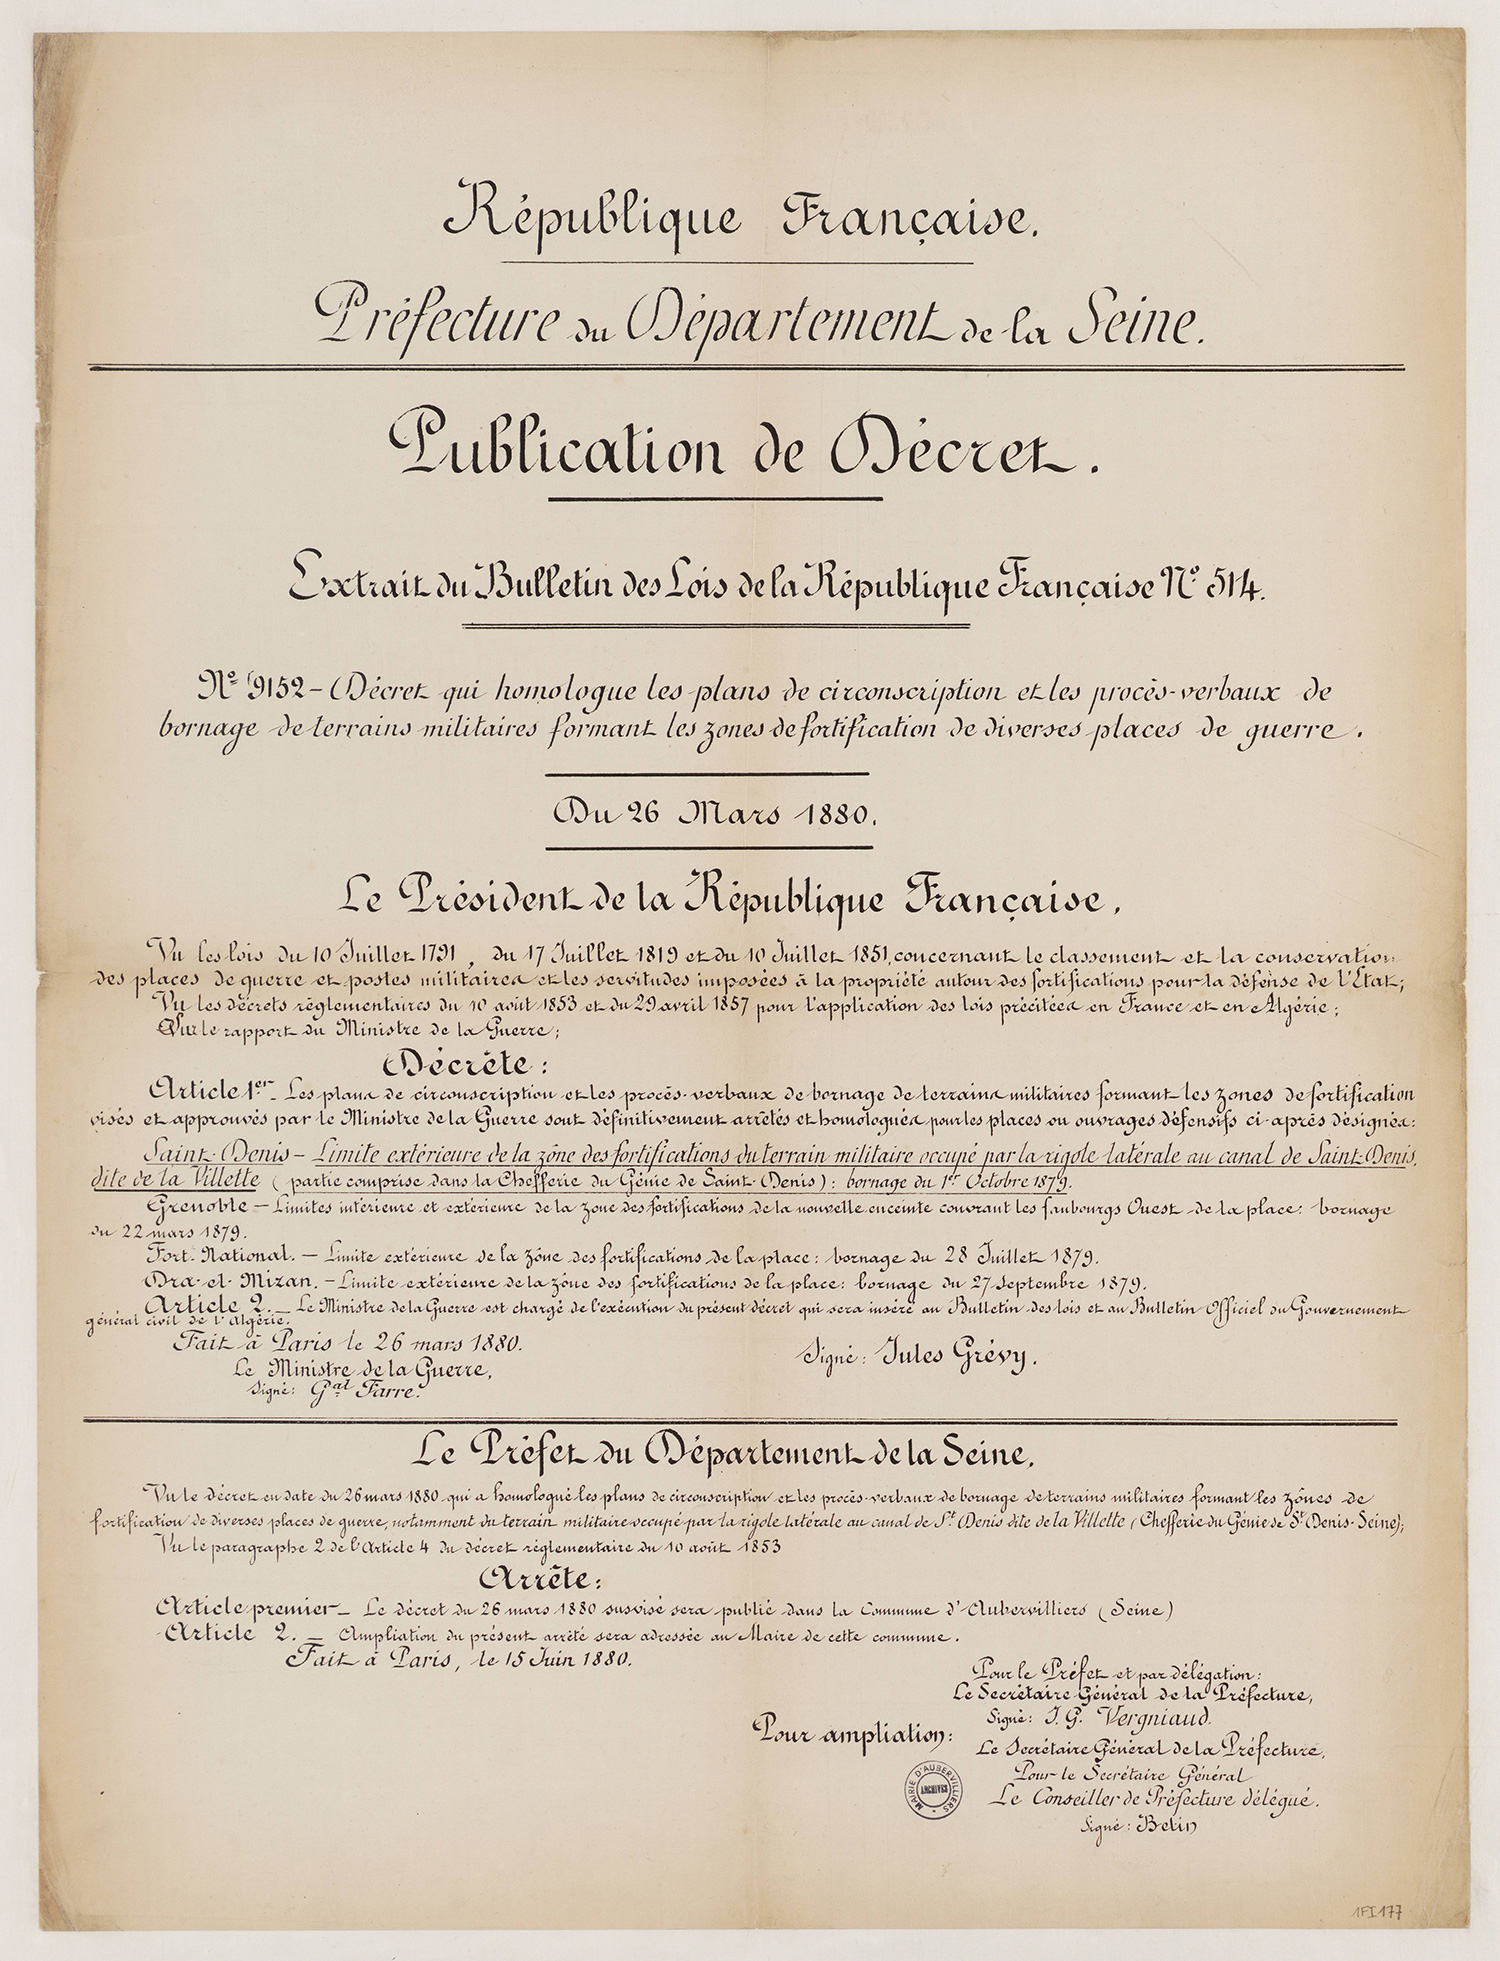 République Française.
Préfecture du Département de la Seine.
Publication de Décret.
Extrait du Bulletin des Lois de la République Française N° 514.
N° 9152 - Décret qui homologue les plans de circonscription et les procès-verbaux de
bornage de terrains militaires formant les zones de fortification de diverses places de guerre.
Du 26 Mars 1880.
Le Président de la République Française,
Vu les lois du 10 Juillet 1791, du 17 Juillet 1819 et du 10 Juillet 1851, concernant le classement et la conservation
des places de guerre et postes militaires et les servitudes imposées à la propriété autour des fortifications pour la défense de l'État;
Vu les décrets réglementaires du 10 août 1853 et du 29 avril 1857 pour l'application des lois précitées en France et en Algérie;
Vu le rapport du Ministre de la Guerre;
Décrète:
Article 1er - Les plans de circonscription et les procès-verbaux de bornage de terrains militaires formant les zones de fortification
visés et approuvés par le Ministre de la Guerre sont définitivement arrêtés et homologués pour les places ou ouvrages défensifs ci-après désignés:
Saint-Denis - Limite extérieure de la zône des fortifications du terrain militaire occupé par la rigole latérale au canal de Saint-Denis,
dite de la Villette (partie comprise dans la Chefferie du Génie de Saint-Denis): bornage du 1er Octobre 1879.
Grenoble - Limites intérieure et extérieure de la zone des fortifications de la nouvelle enceinte couvrant les faubourgs Ouest de la place: bornage
du 22 mars 1879.
Fort-National. - Limite extérieure de la zône des fortifications de la place: bornage du 28 Juillet 1879.
Dra-el-Mizan. - Limite extérieure de la zône des fortifications de la place: bornage du 27 Septembre 1879.
Article 2. - Le Ministre de la Guerre est chargé de l'exécution du présent décret qui sera inséré au Bulletin des lois et au Bulletin Officiel du Gouvernement
général civil de l'Algérie.
Fait à Paris le 26 mars 1880.
Signé: Jules Grévy.
Le Ministre de la Guerre,
Signé: Gal Farre.
Le Préfet du Département de la Seine,
Vu le décret en date du 26 mars 1880 qui a homologué les plans de circonscription et les procès-verbaux de bornage de terrains militaires formant les zônes de
fortification de diverses places de guerre, notamment du terrain militaire occupé par la rigole latérale au canal de St Denis dite de la Villette (Chefferie du Génie de St Denis-Seine);
Vu le paragraphe 2 de l'Article 4 du décret réglementaire du 10 août 1853
Arrête:
Article premier - Le décret du 26 mars 1880 susvisé sera publié dans la Commune d'Aubervilliers (Seine)
Article 2. - Ampliation du présent arrêté sera adressée au Maire de cette commune.
Fait à Paris, le 15 Juin 1880.
Pour le Préfet et par délégation:
Le Secrétaire Général de la Préfecture,
Signé: J. G. Vergniaud.
Pour ampliation:
Le Secrétaire Général de la Préfecture,
Pour le Secrétaire Général
Le Conseiller de Préfecture délégué.
Signé: Belin
MAIRIE D'AUBERVILLIERS
ARCHIVES
1FI177